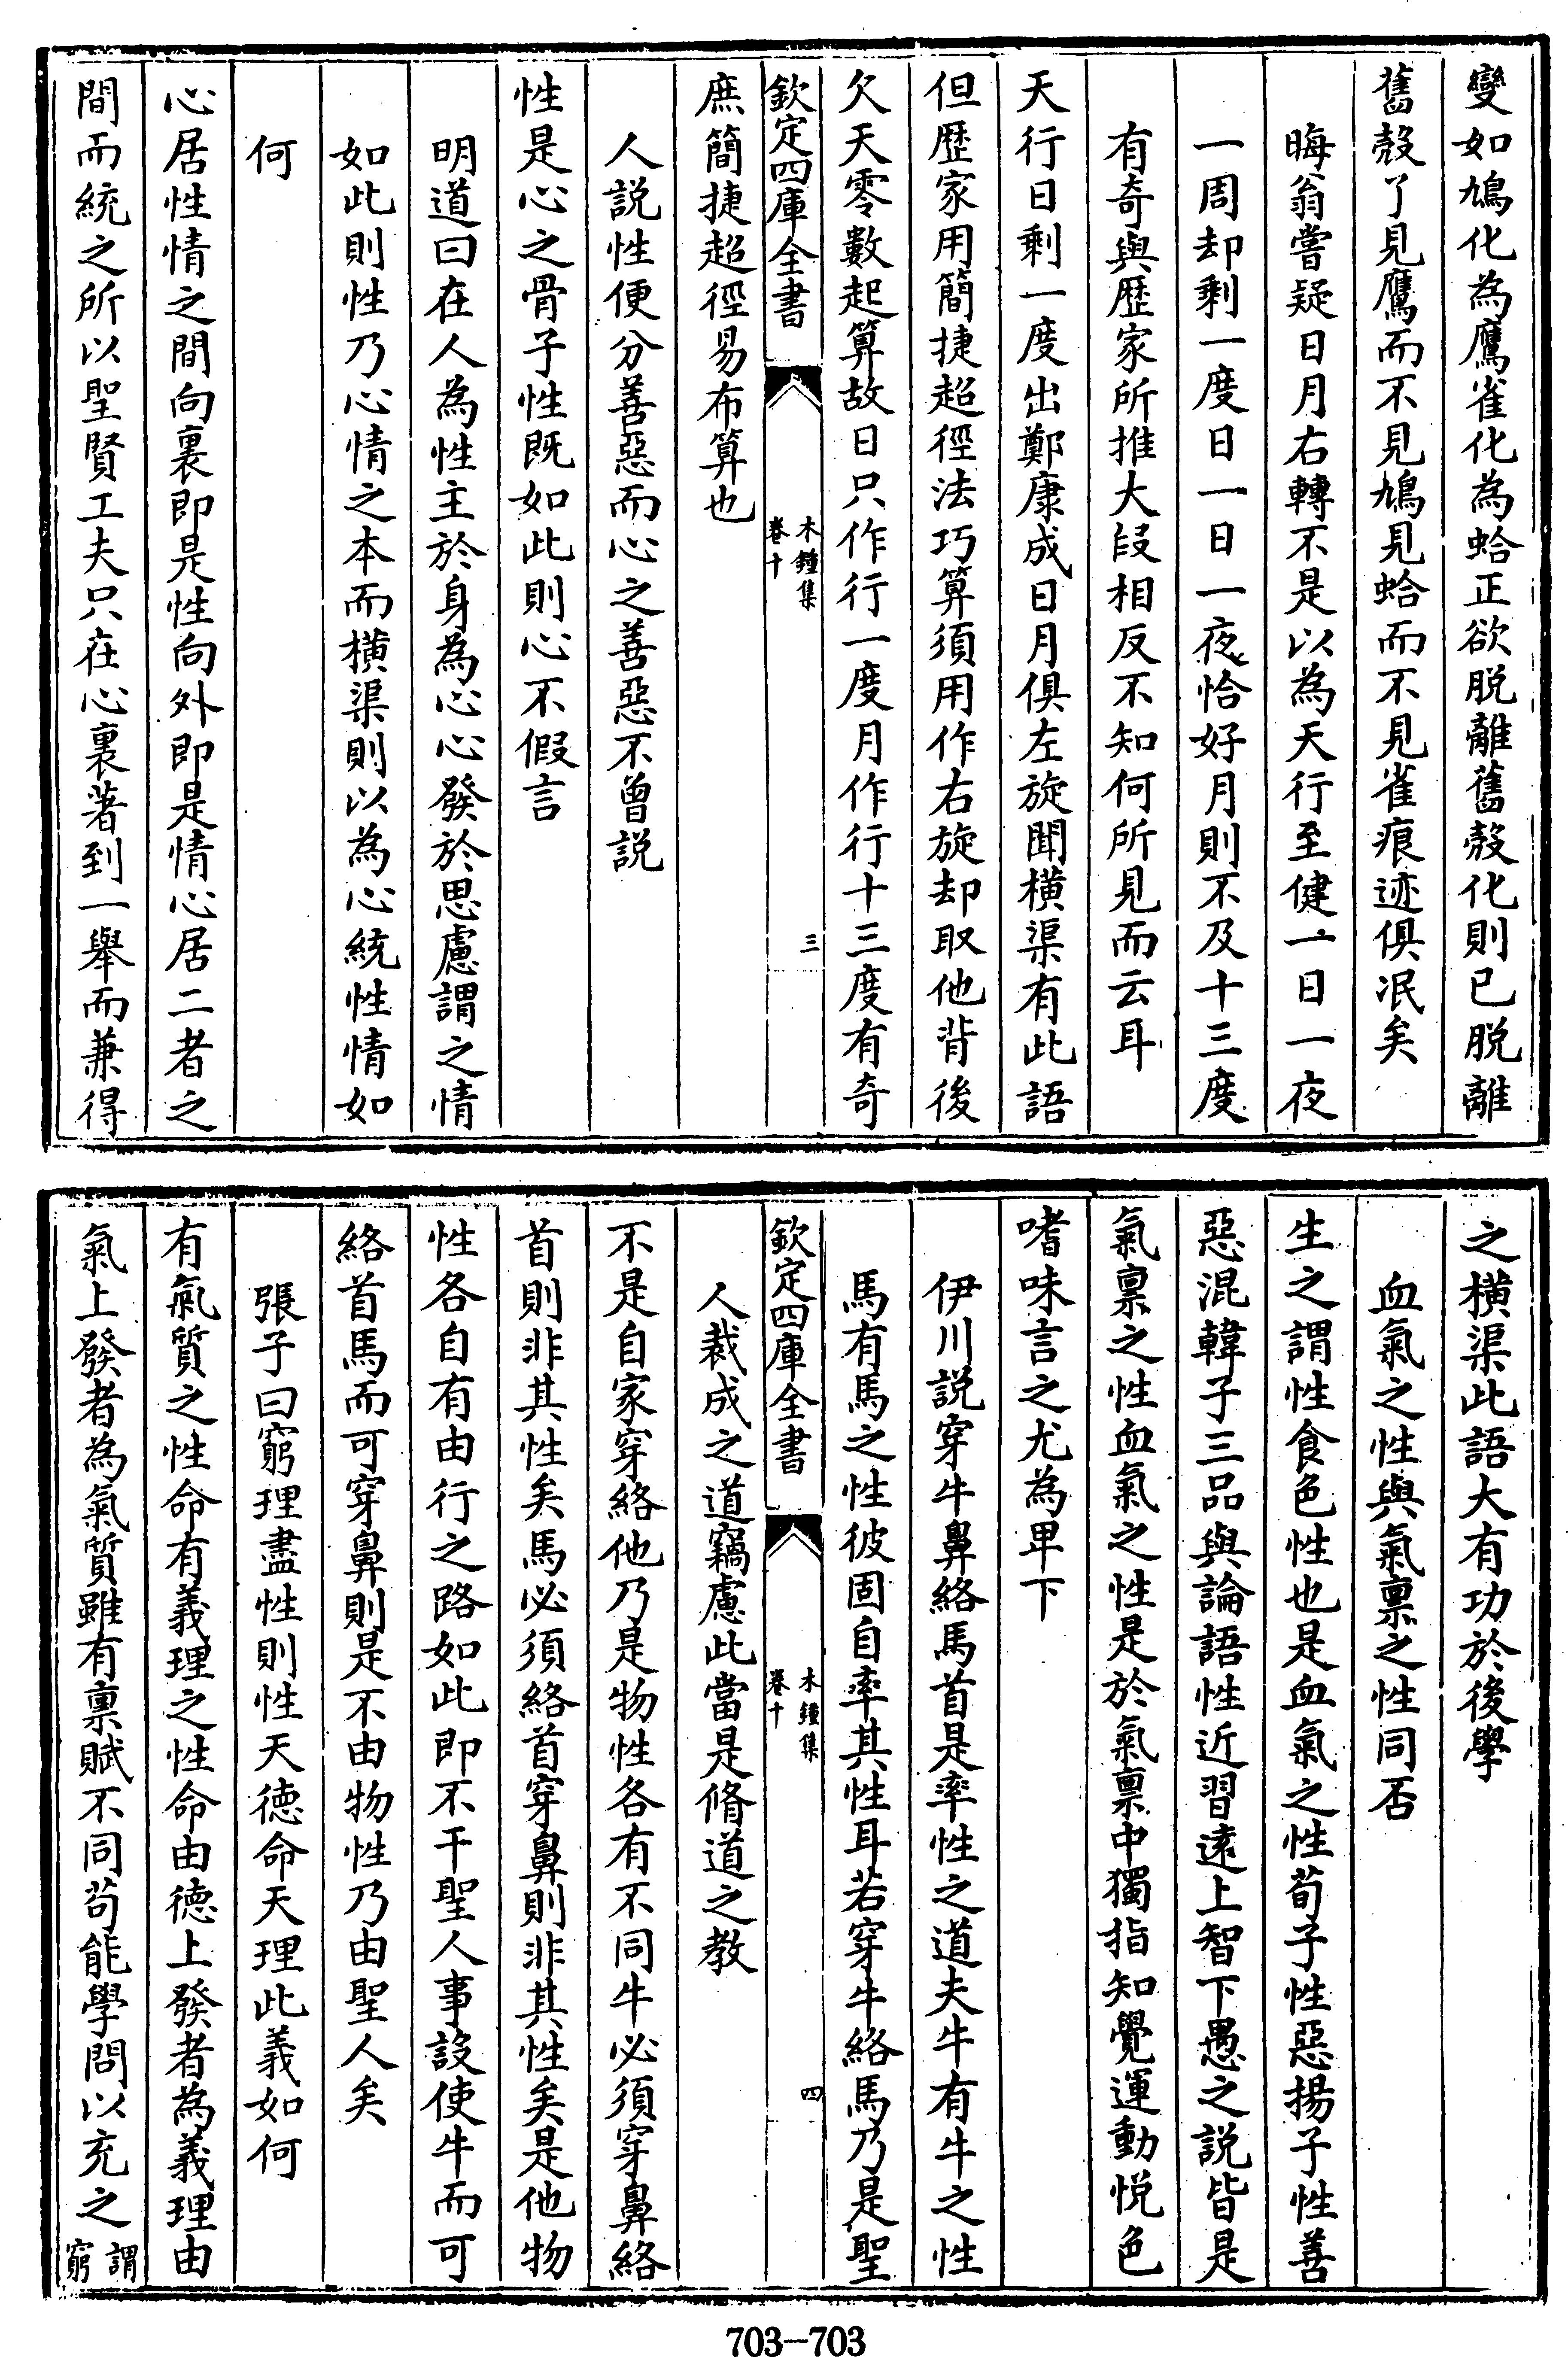 變如鳩化為鷹雀化為蛤正欲脱離舊殼化則已脱離
舊殼了見鷹而不見鳩見蛤而不見雀痕迹俱泯矣
晦翁嘗疑日月右轉不是以為天行至健一日一夜
一周却剩一度日一日一夜恰好月則不及十三度
有奇與歴家所推大段相反不知何所見而云耳
天行日剩一度出鄭康成日月俱左旋聞横渠有此語
但歴家用簡捷超徑法巧算須用作右旋却取他背後
欠天零數起算故日只作行一度月作行十三度有奇
欽定四庫全書
木鍾集
卷十
三
庶簡捷超徑易布算也
人説性便分善惡而心之善惡不曽説
性是心之骨子性既如此則心不假言
明道曰在人為性主於身為心心發於思慮謂之情
如此則性乃心情之本而横渠則以為心統性情如
何
心居性情之間向裏即是性向外即是情心居二者之
間而統之所以聖賢工夫只在心裏著到一舉而兼得
之横渠此語大有功於後學
血氣之性與氣禀之性同否
生之謂性食色性也是血氣之性荀子性惡揚子性善
惡混韓子三品與論語性近習逺上智下愚之説皆是
氣禀之性血氣之性是於氣禀中獨指知覺運動悦色
嗜味言之尤為卑下
伊川説穿牛鼻絡馬首是率性之道夫牛有牛之性
馬有馬之性彼固自率其性耳若穿牛絡馬乃是聖
欽定四庫全書
木鍾集
卷十
四
人裁成之道竊慮此當是脩道之教
不是自家穿絡他乃是物性各有不同牛必須穿鼻絡
首則非其性矣馬必須絡首穿鼻則非其性矣是他物
性各自有由行之路如此即不干聖人事設使牛而可
絡首馬而可穿鼻則是不由物性乃由聖人矣
張子曰窮理盡性則性天德命天理此義如何
有氣質之性命有義理之性命由德上發者為義理由
氣上發者為氣質雖有禀賦不同苟能學問以充之謂
窮
703—703